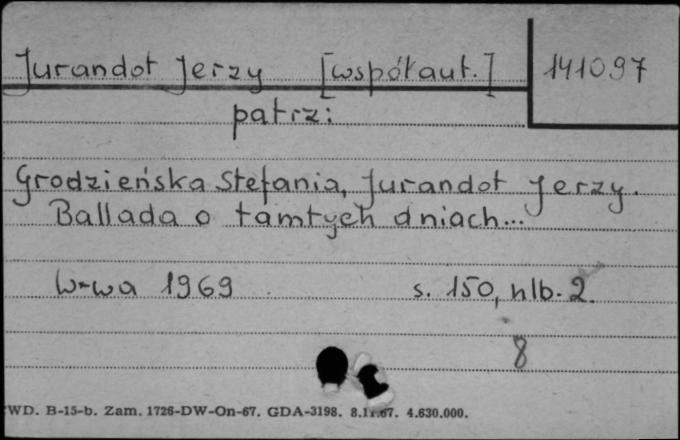 Jurandot Jerzy [współaut.] 141097
patrz:
Grodzieńska Stefania, Jurandot Jerzy.
Ballada o tamtych dniach...
W-wa 1969 s. 150, nlb. 2.
8
WD. B-15-b. Zam. 1726-DW-On-67. GDA-3198. 8.11.67. 4.630.000.